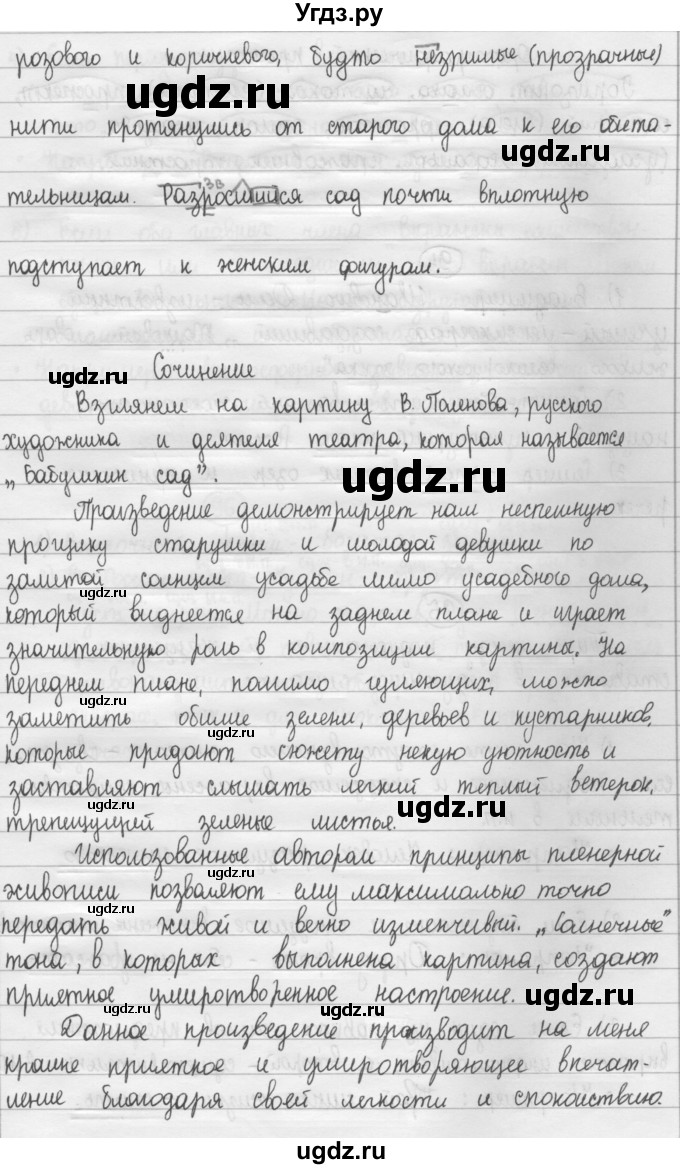 Угдз.ру
розового и коричневого, будто незримые (прозрачные)
ugdz.ru
ugdz.ru
нити протянулись от старого дома к его обита-
тельницам. Разросшийся сад почти вплотную
зв
подступает к женским фигурам.
Сочинение
ugdz.ru
Взглянем на картину В. Поленова, русского
художника и деятеля театра, которая называется
„Бабушкин сад".
ugdz.ru
ugdz.ru
Произведение демонстрирует нам неспешную
прогулку старушки и молодой девушки по
залитой солнцем усадьбе мимо усадебного дома,
ugdz.ru
который виднеется на заднем плане и играет
значительную роль в композиции картины. На
переднем плане, помимо гуляющих, можно
заметить обилие зелени, деревьев и кустарников,
ugdz.ru
которые придают сюжету некую уютность и
заставляют слышать легкий теплый ветерок,
ugdz.ru
ugdz.ru
трепещущий зеленые листья.
Использованные автором принципы пленерной
ugdz.ru
живописи позволяют ему максимально точно
передать живой и вечно изменчивый. „Солнечные"
ugdz.ru
тона, в которых выполнена картина, создают
приятное умиротворенное настроение.
ugdz.ru
Данное произведение производит на меня
крайне приятное и умиротворяющее впечат-
ugdz.ru
ление благодаря своей легкости и спокойствию.
ugdz.ru